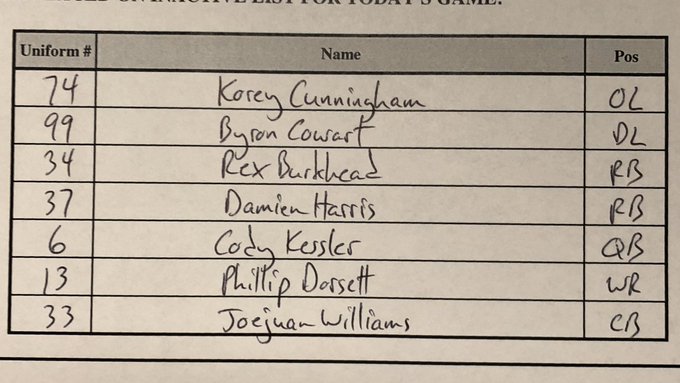 INACTIVE LIST FOR TODAY'S GAME:
Uniform # Name Pos
74 Korey Cunningham OL
99 Byron Cowart DL
34 Rex Burkhead RB
37 Damien Harris RB
6 Cody Kessler QB
13 Phillip Dorsett WR
33 Joejuan Williams CB